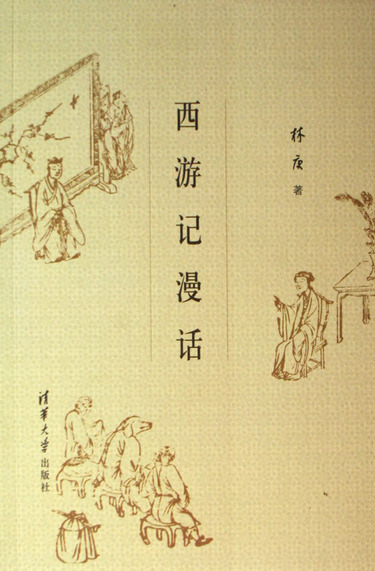 西游记漫话
林庚 著
清华大学出版社